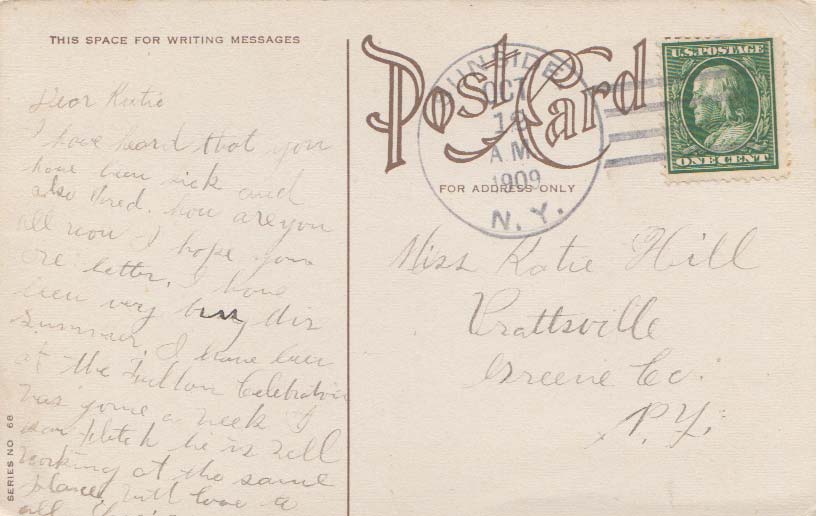 THIS SPACE FOR WRITING MESSAGES
Dear Katie
I have heard that you
have been sick and
also Fred. how are you
all now I hope you
are better. I have
been very busy dis
Summer. I have been
at the Fulton Celebration
was gone a week I
saw he is well
working at the same
place, with love to
all
SERIES NO 68
Post Card
FOR ADDRESS ONLY
SUNSIDE
OCT
A M
1909
N.Y.
U.S. POSTAGE
ONE CENT
Miss Katie Hill
Prattsville
Greene Co.
N.Y.